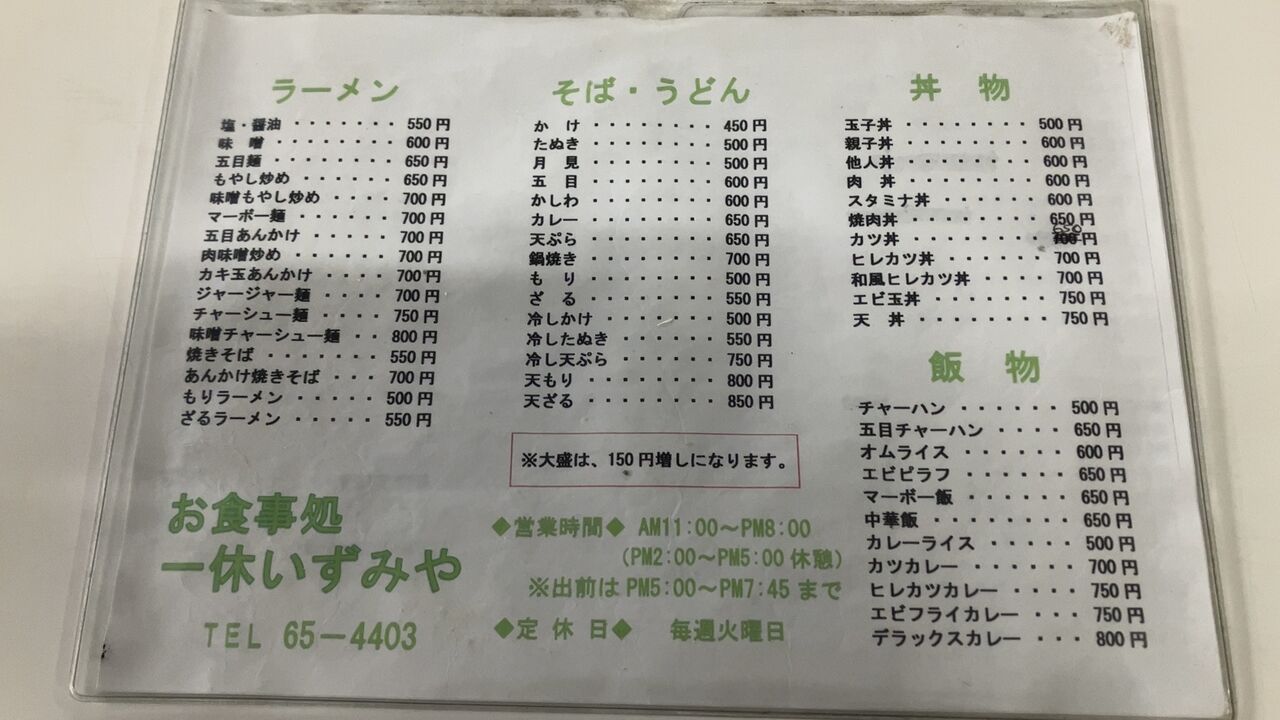 ラーメン
塩・醤油 ・・・・・・・ 550円
味　噌 ・・・・・・・・ 600円
五目麺 ・・・・・・・・ 650円
もやし炒め ・・・・・・ 650円
味噌もやし炒め ・・・・ 700円
マーボー麺 ・・・・・・ 700円
五目あんかけ ・・・・・ 700円
肉味噌炒め ・・・・・・ 700円
カキ玉あんかけ ・・・・ 700円
ジャージャー麺 ・・・・ 700円
チャーシュー麺 ・・・・ 750円
味噌チャーシュー麺 ・・ 800円
焼きそば ・・・・・・・ 550円
あんかけ焼きそば ・・・ 700円
もりラーメン ・・・・・ 500円
ざるラーメン ・・・・・ 550円
お食事処
一休いずみや
TEL 65－4403
そば・うどん
か　け ・・・・・・・・ 450円
たぬき ・・・・・・・・ 500円
月　見 ・・・・・・・・ 500円
五　目 ・・・・・・・・ 600円
かしわ ・・・・・・・・ 600円
カレー ・・・・・・・・ 650円
天ぷら ・・・・・・・・ 650円
鍋焼き ・・・・・・・・ 700円
も　り ・・・・・・・・ 500円
ざ　る ・・・・・・・・ 550円
冷しかけ ・・・・・・・ 500円
冷したぬき ・・・・・・ 550円
冷し天ぷら ・・・・・・ 750円
天もり ・・・・・・・・ 800円
天ざる ・・・・・・・・ 850円
※大盛は、150円増しになります。
◆営業時間◆ AM11:00～PM8:00
(PM2:00～PM5:00休憩)
※出前はPM5:00～PM7:45まで
◆定 休 日◆　毎週火曜日
丼　物
玉子丼 ・・・・・・・・ 500円
親子丼 ・・・・・・・・ 600円
他人丼 ・・・・・・・・ 600円
肉　丼 ・・・・・・・・ 600円
スタミナ丼 ・・・・・・ 600円
焼肉丼 ・・・・・・・・ 650円
650
カツ丼 ・・・・・・・・ 700円
ヒレカツ丼 ・・・・・・ 700円
和風ヒレカツ丼 ・・・・ 700円
エビ玉丼 ・・・・・・・ 750円
天　丼 ・・・・・・・・ 750円
飯　物
チャーハン ・・・・・・ 500円
五目チャーハン ・・・・ 650円
オムライス ・・・・・・ 600円
エビピラフ ・・・・・・ 650円
マーボー飯 ・・・・・・ 650円
中華飯 ・・・・・・・・ 650円
カレーライス ・・・・・ 500円
カツカレー ・・・・・・ 700円
ヒレカツカレー ・・・・ 750円
エビフライカレー ・・・ 750円
デラックスカレー ・・・ 800円